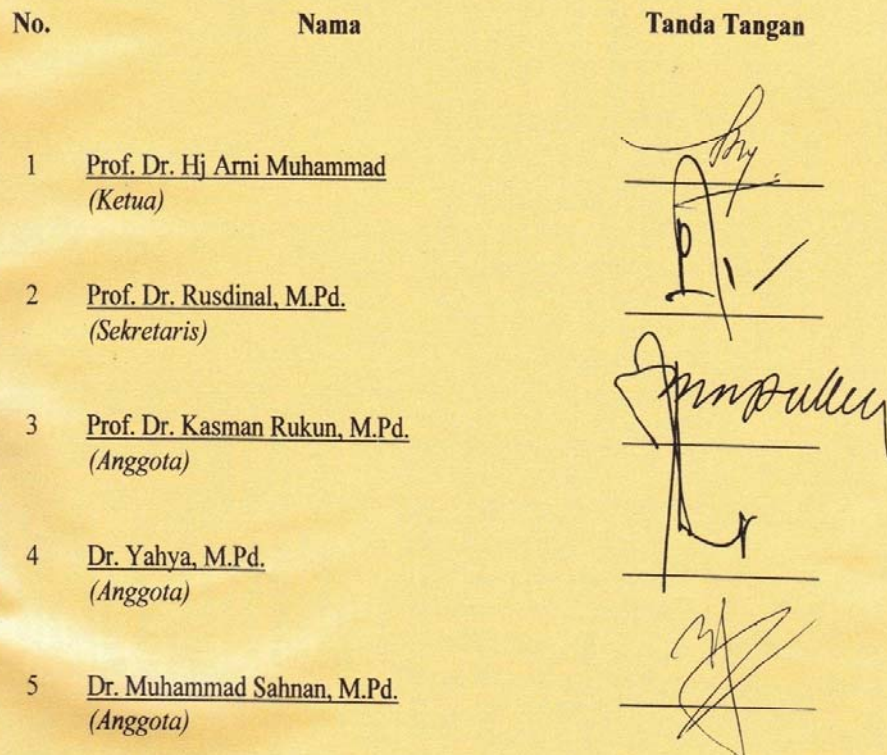 No. Nama Tanda Tangan
1 Prof. Dr. Hj Arni Muhammad
(Ketua)
2 Prof. Dr. Rusdinal, M.Pd.
(Sekretaris)
3 Prof. Dr. Kasman Rukun, M.Pd.
(Anggota)
4 Dr. Yahya, M.Pd.
(Anggota)
5 Dr. Muhammad Sahnan, M.Pd.
(Anggota)